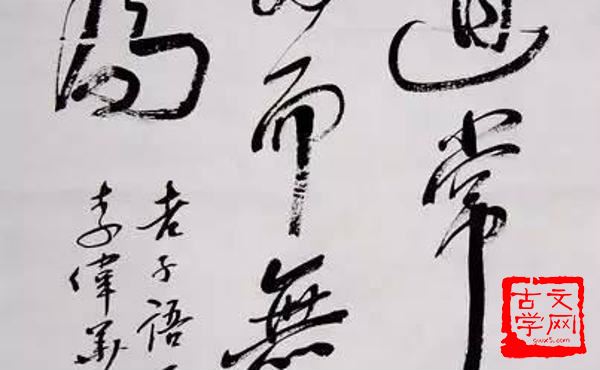 道常
而無
為
老子語
李偉
古文
学网